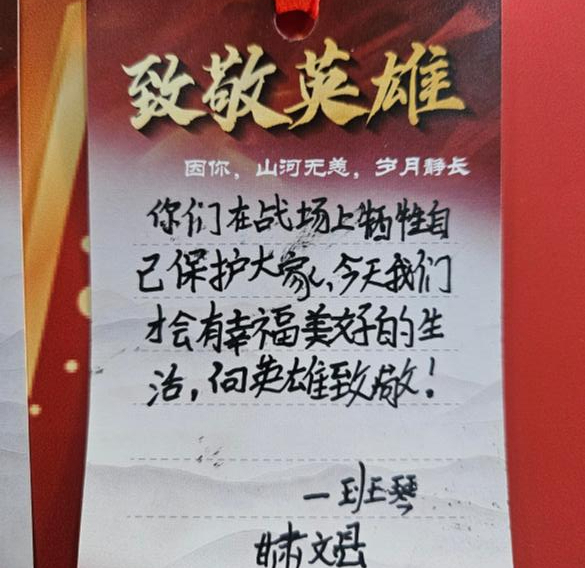 致敬英雄
因你，山河无恙，岁月静长
你们在战场上牺牲自
己保护大家，今天我们
才会有幸福美好的生
活，向英雄致敬！
一班
文